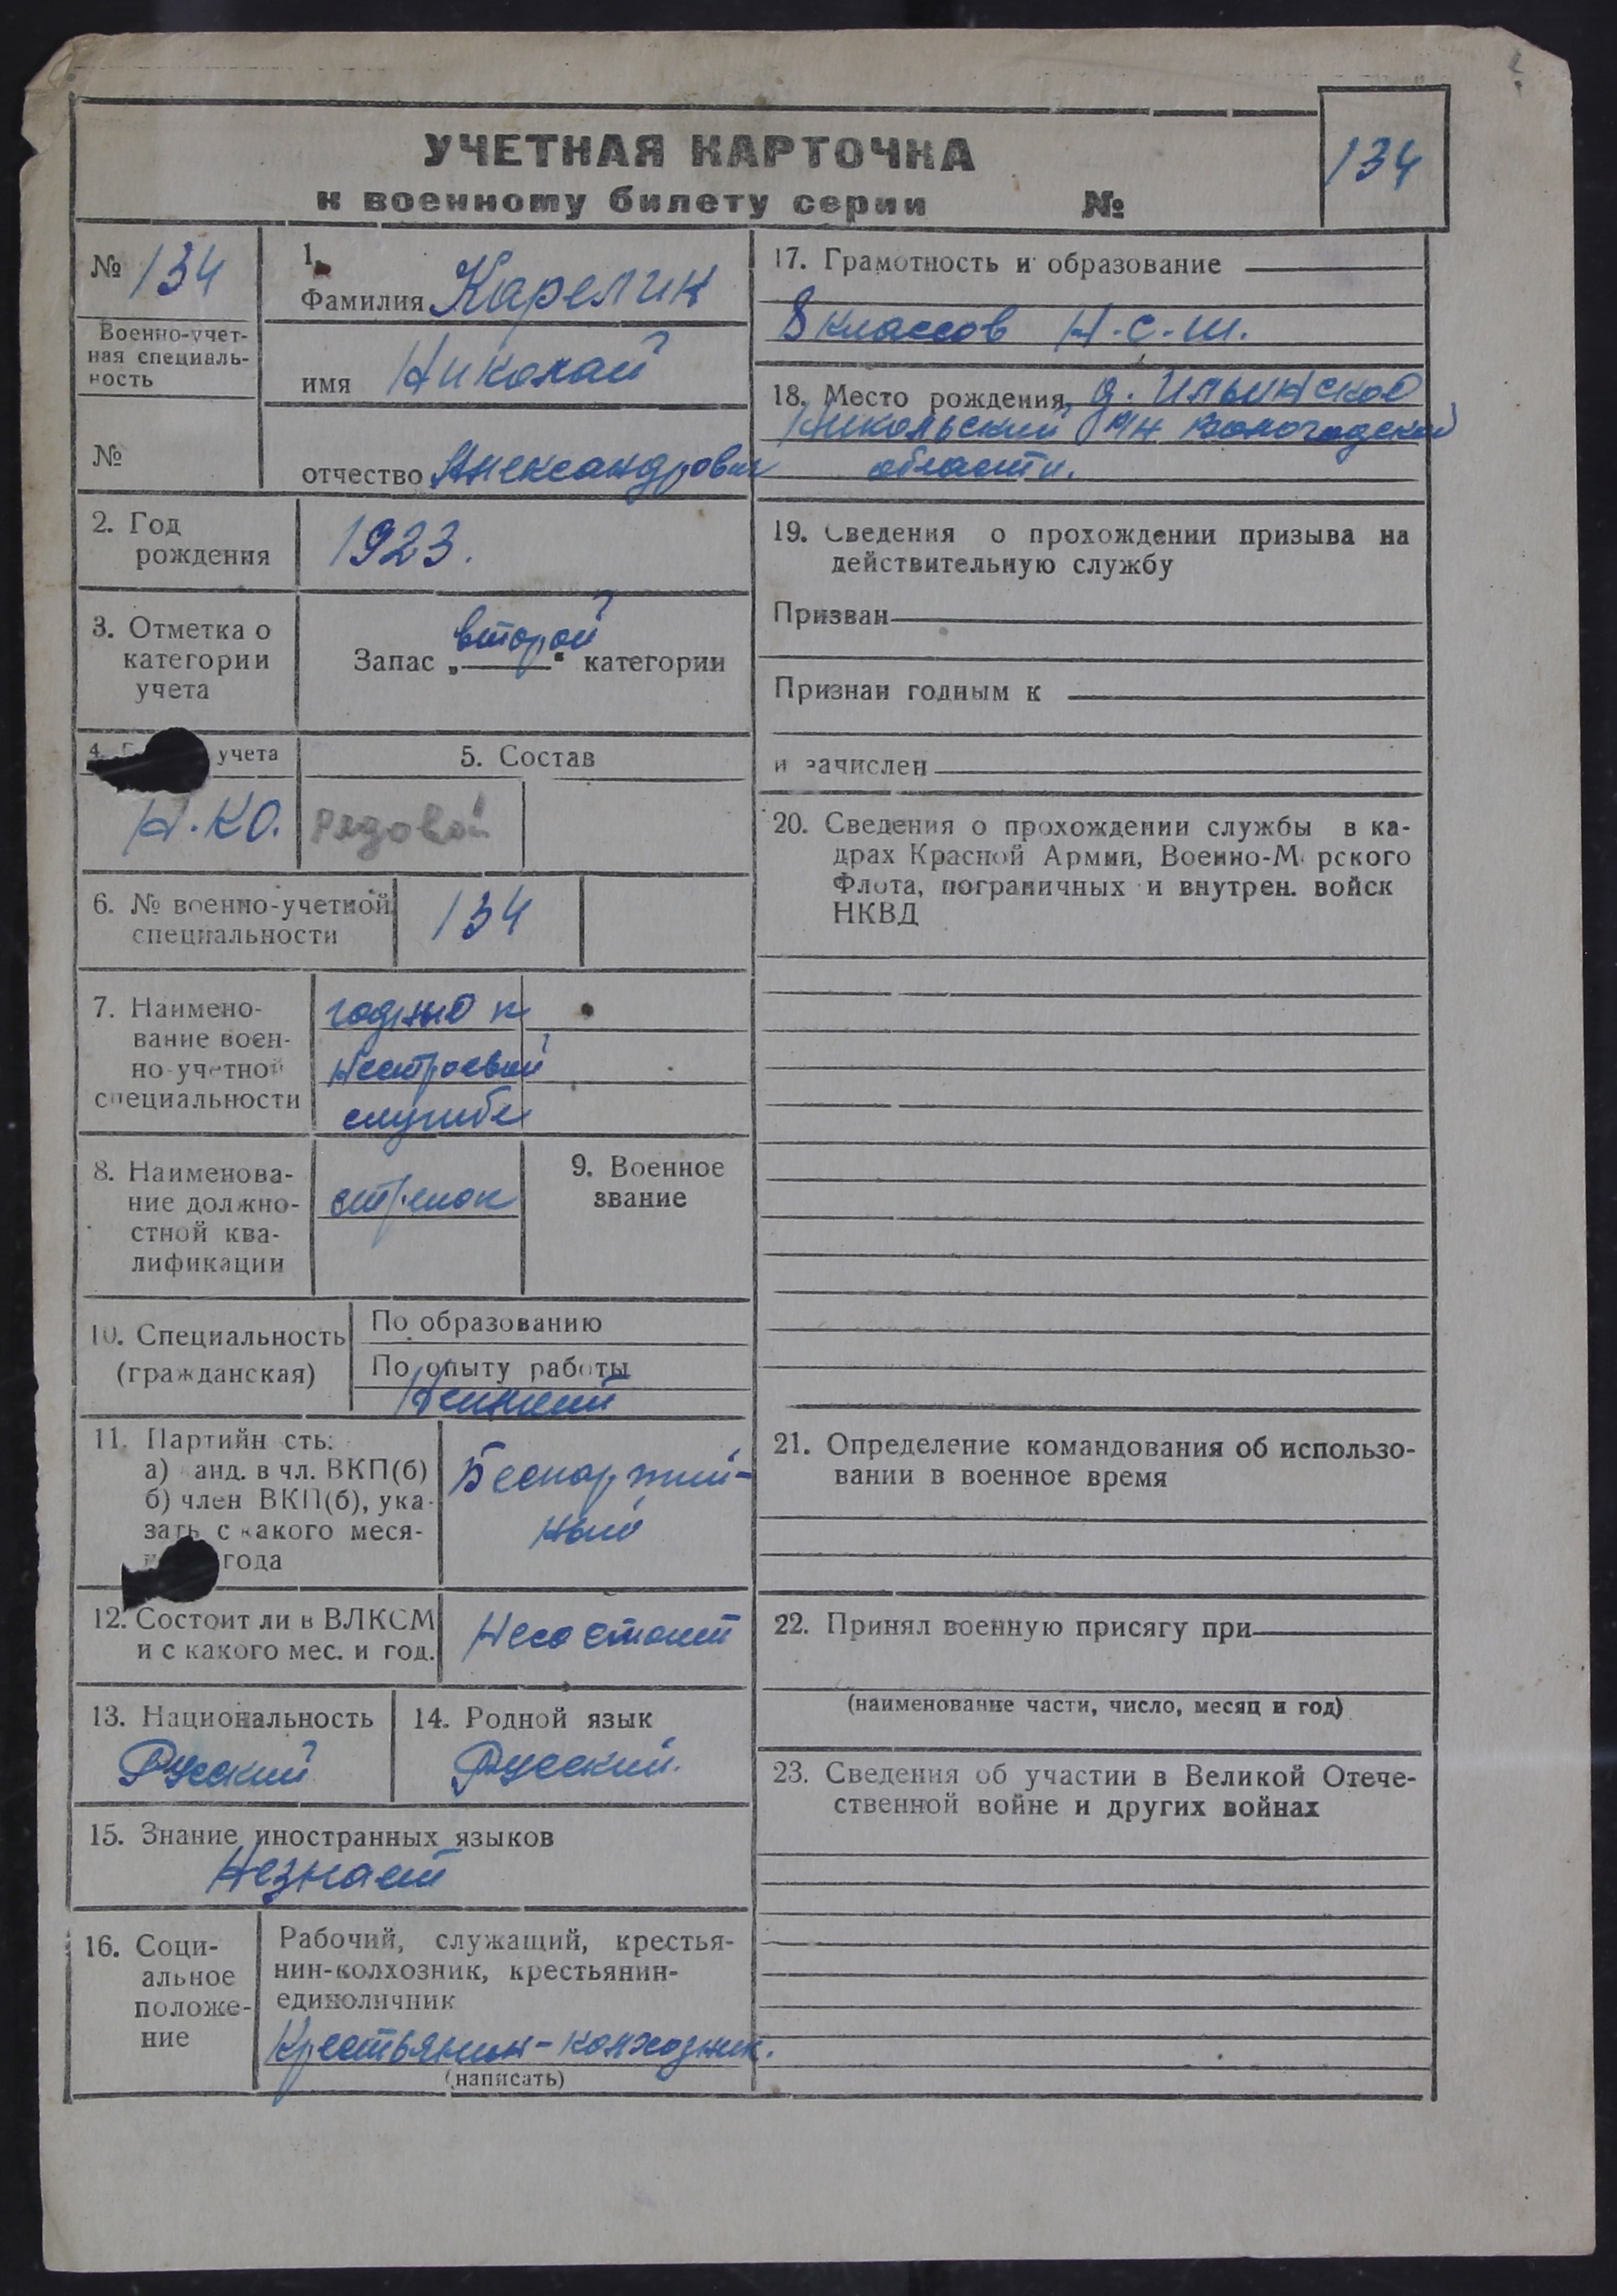 УЧЕТНАЯ КАРТОЧКА
к военному билету серии №
134
№ 134
Военно-учет-
ная специаль-
ность
№
1.
Фамилия Карелин
имя Николай
отчество Александрович
2. Год
рождения
1923.
3. Отметка о
категории
учета
Запас „второй“ категории
4. учета
Н.КО.
5. Состав
рядовой
6. № военно-учетной
специальности
134
7. Наимено-
вание воен-
но-учетной
специальности
годный к
нестроевой
службе
8. Наименова-
ние должно-
стной ква-
лификации
стрелок
9. Военное
звание
10. Специальность
(гражданская)
По образованию
По опыту работы
11. Партийн сть:
а) канд. в чл. ВКП(б)
б) член ВКП(б), ука-
зать с какого меся-
года
Беспартий-
ный
12. Состоит ли в ВЛКСМ
и с какого мес. и год.
Несостоит
13. Национальность
Русский
14. Родной язык
Русский.
15. Знание иностранных языков
Незнает
16. Соци-
альное
положе-
ние
Рабочий, служащий, крестья-
нин-колхозник, крестьянин-
единоличник
Крестьянин-колхозник.
(написать)
17. Грамотность и образование
8 классов Н.С.Ш.
18. Место рождения д. Ильинское
Никольский р/н Вологодской
области.
19. Сведения о прохождении призыва на
действительную службу
Призван
Признан годным к
и зачислен
20. Сведения о прохождении службы в ка-
драх Красной Армии, Военно-М рского
Флота, пограничных и внутрен. войск
НКВД
21. Определение командования об использо-
вании в военное время
22. Принял военную присягу при
(наименование части, число, месяц и год)
23. Сведения об участии в Великой Отече-
ственной войне и других войнах